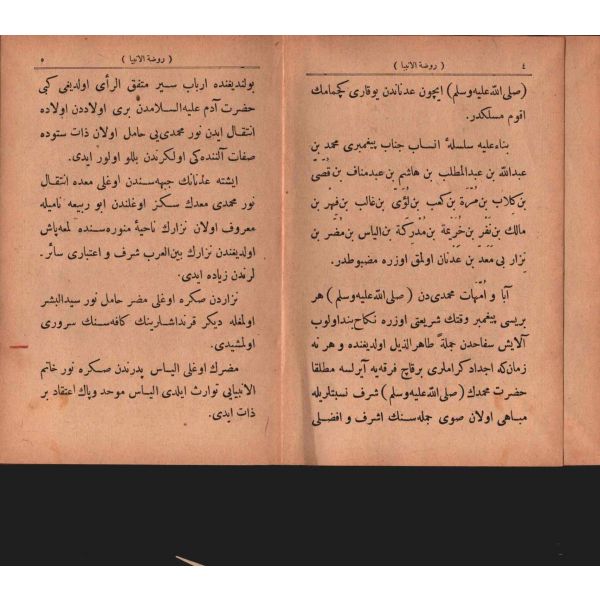 ٤ ( روضة الانبيا )
(صلى الله عليه وسلم) ايچون عدناندن يوقارى كچمامك
اقوم مسلكدر.
بناء عليه سلسلهٔ انساب جناب پيغمبرى محمد بن
عبدالله بن عبدالمطلب بن هاشم بن عبدمناف بن قُصَىّ
بن كِلاب بن مُرّة بن كعب بن لُؤَىّ بن غالب بن فِهْر بن
مالك بن نَضْر بن خُزَيمَة بن مُدْرِكَة بن الياس بن مُضَر بن
نِزار بن مَعَدّ بن عَدْنان اولمق اوزره مضبوطدر.
آبا و اُمّهات محمدى دن (صلى الله عليه وسلم) هر
بريسى پيغمبر وقتك شريعتى اوزره نكاح بند اولوب
آلايش سفاحدن جملةً طاهرالذيل اولديغنده و هر نه
زمان كه اجداد كراملرى برقاچ فرقه يه آيرلسه مطلقا
حضرت محمدك (صلى الله عليه وسلم) شرف نسبتلريله
مباهى اولان صوى جمله سنك اشرف و افضلى
( روضة الانبيا ) ٥
بولنديغنده ارباب سير متفق الرأى اولديغى كبى
حضرت آدم عليه السلامدن برى اولاددن اولاده
انتقال ايدن نور محمدى يى حامل اولان ذات ستوده
صفات آلننده كى اولكرندن بللو اولور ايدى.
ايشته عدنانك جبهه سندن اوغلى معده انتقال
نور محمدى معدك سكز اوغلندن ابو ربيعه ناميله
معروف اولان نزارك ناحيهٔ منوره سنده لمعه پاش
اولديغندن نزارك بين العرب شرف و اعتبارى سائر
لرندن زياده ايدى.
نزاردن صكره اوغلى مضر حامل نور سيدالبشر
اولمغله ديكر قرنداشارينك كافه سنك سرورى
اولمشيدى.
مضرك اوغلى الياس پدرندن صكره نور خاتم
الانبيايى توارث ايلدى الياس موحد وپاك اعتقاد بر
ذات ايدى.